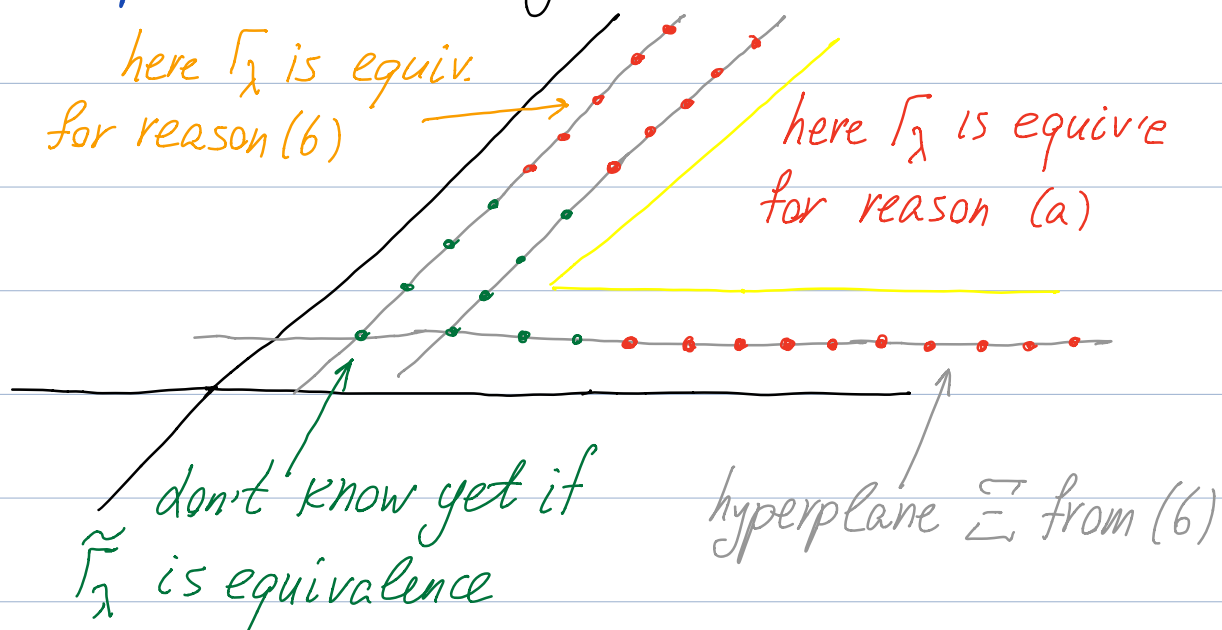 here Γ_λ is equiv.
for reason (6)
here Γ_λ is equiv'e
for reason (a)
don't know yet if
Γ̃_λ is equivalence
hyperplane Ξ from (6)